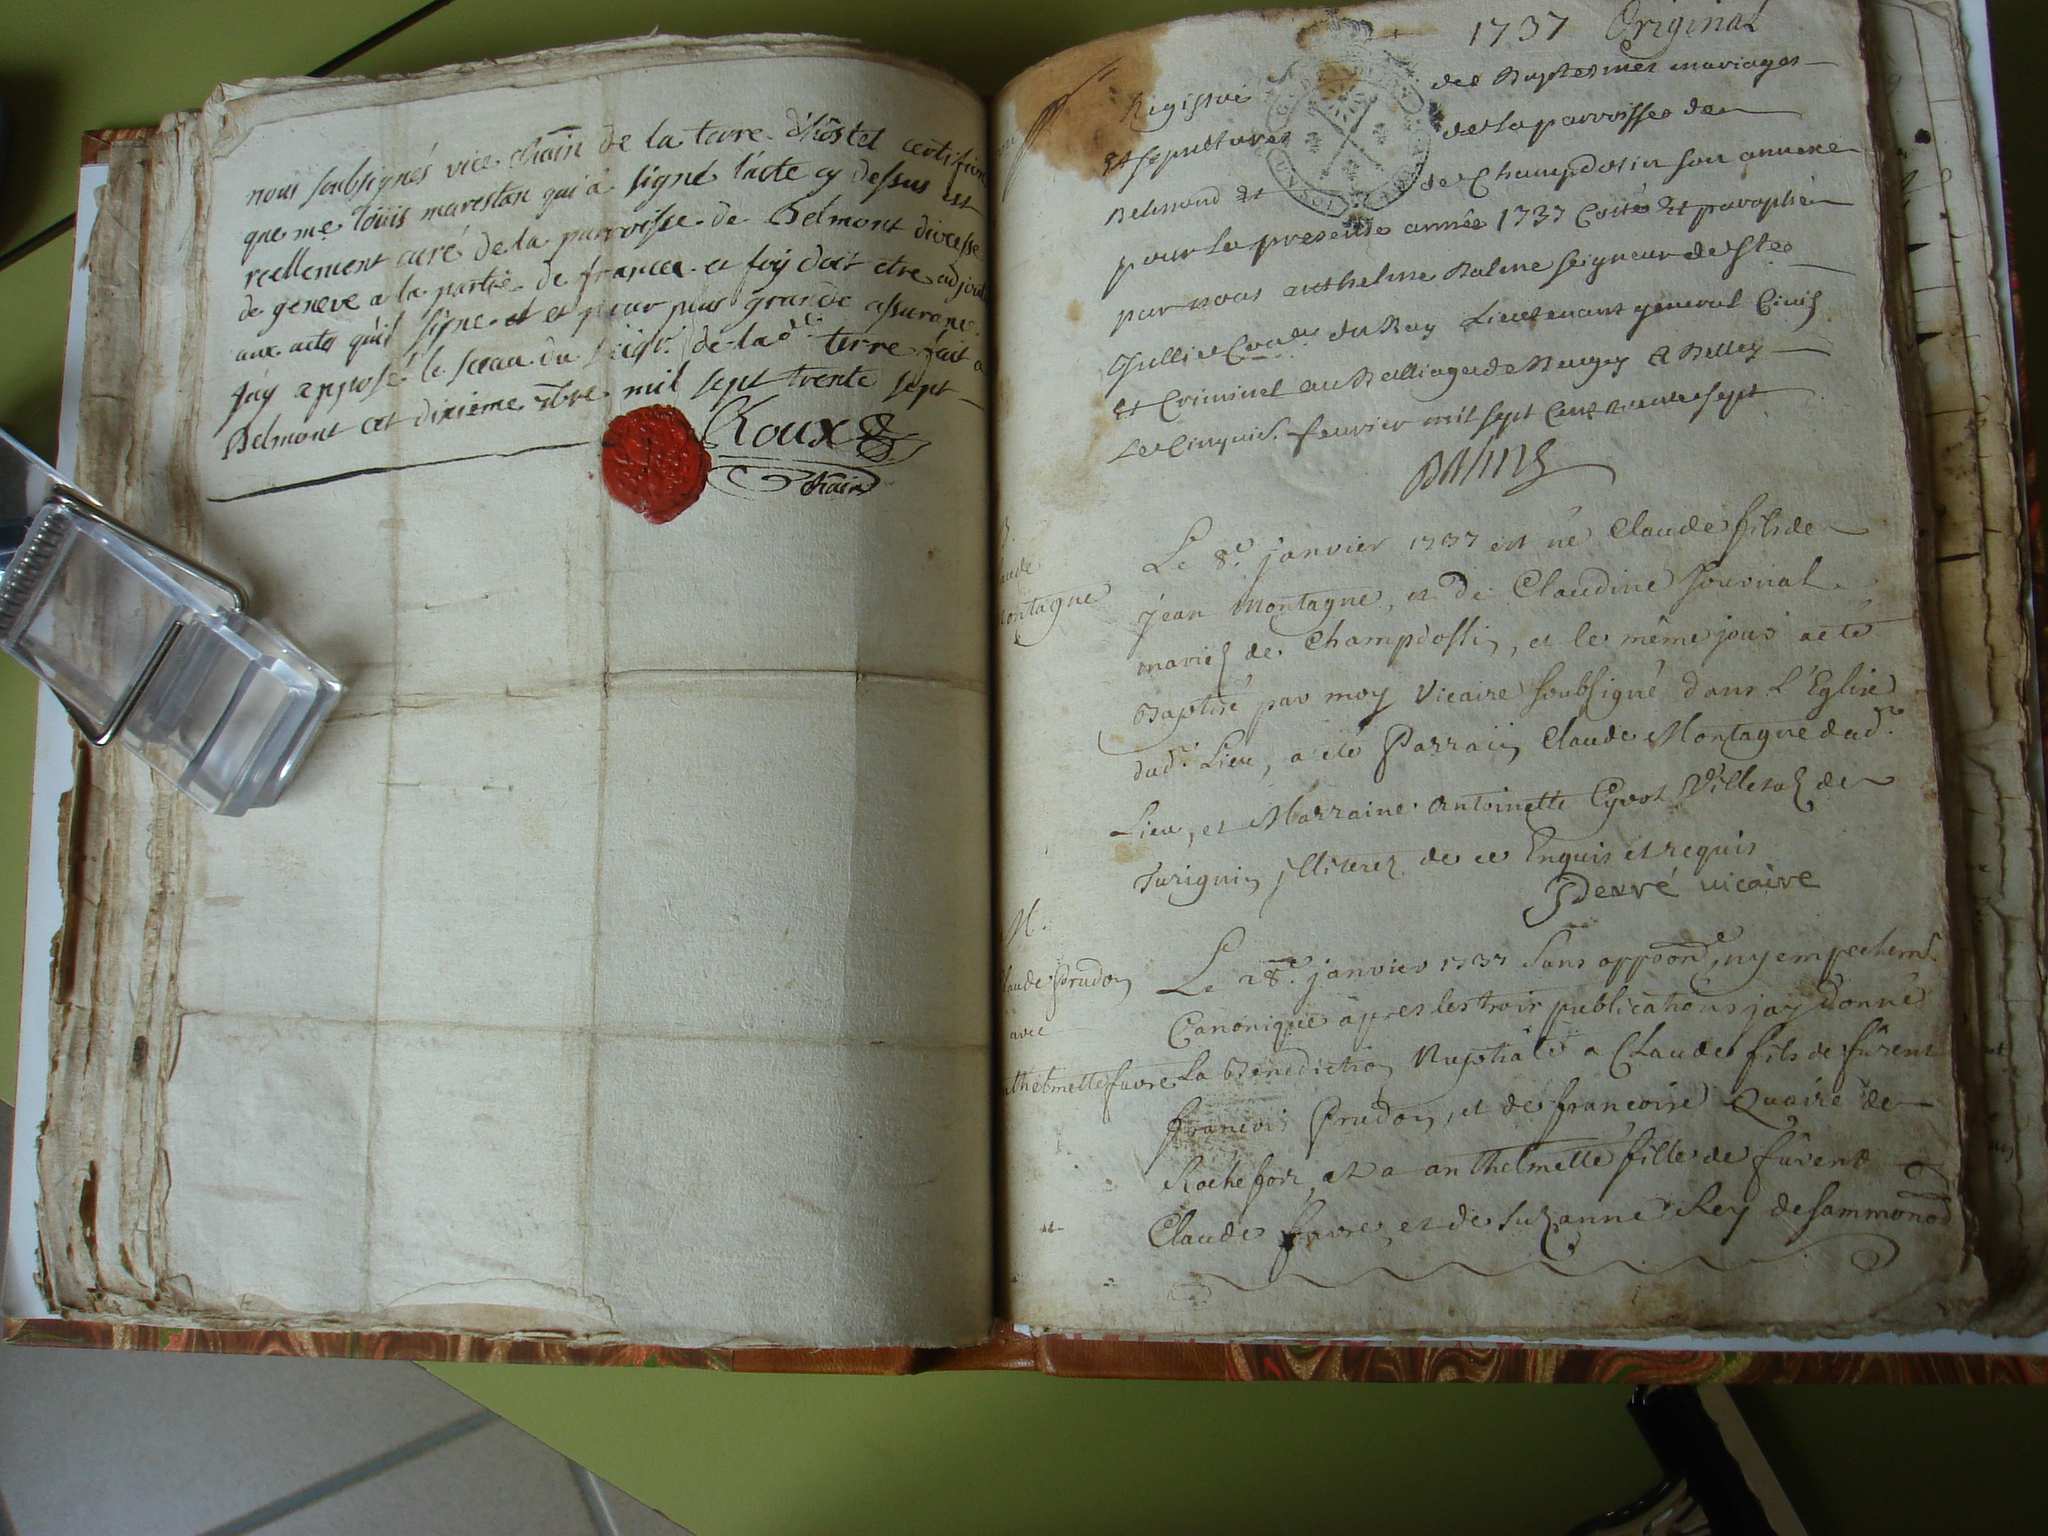 nous soubsignés vice chãin de la terre d'hôstel certifion
que me loüis marestan qui a signé l'acte cy dessus est
reellement curé de la parroisse de Belmont diocesse
de geneve a la partie de france et foÿ doit etre adjout
aux actes qu'il signe et et pour plus grande assurance
j'aÿ apposé le sceau du seigr. de lade. terre fait a
Belmont cet dixième xbre mil sept trente sept
Roux
chãin
1737 Original
Registre des Baptesmes mariages
Et sepultures de la parroisse de
Belmond Et de Champdosin son annexe
pour la presente année 1737 Cotté Et paraphé
par nous anthelme Balme seigneur de Ste
Jullie Coner. du Roy Lieutenant general Civil
Et Criminel au Balliage de Beugey A Belley
Le Cinquie. feuvrier mil sept Cent trente sept
Balme
Le 8e. janvier 1737 est né Claude fils de
aude
ontagne
Jean Montagne, et de Claudine Journal
mariez de Champdossin, et le même jour a eté
Baptisé par moy Vicaire soubsigné dans L'Eglise
dud. Lieu, a eté Parrain Claude Montagne dud.
Lieu, et Marraine Antoinette de
Turignin jlliterez de ce Enquis et requis
Derré vicaire
M.
laude Prudon
avec
nthelmette favre
Le 28e. janvier 1737 sans opposon, ny empechemt
Canonique apres les trois publications jay donné
La Benediction Nuptiale a Claude fils de fûrent
françois Prudon, et de françoise Quaire de
Rochefort, et a anthelmette fille de fûrent
Claude favre, et de Suzanne Rey de sammonod